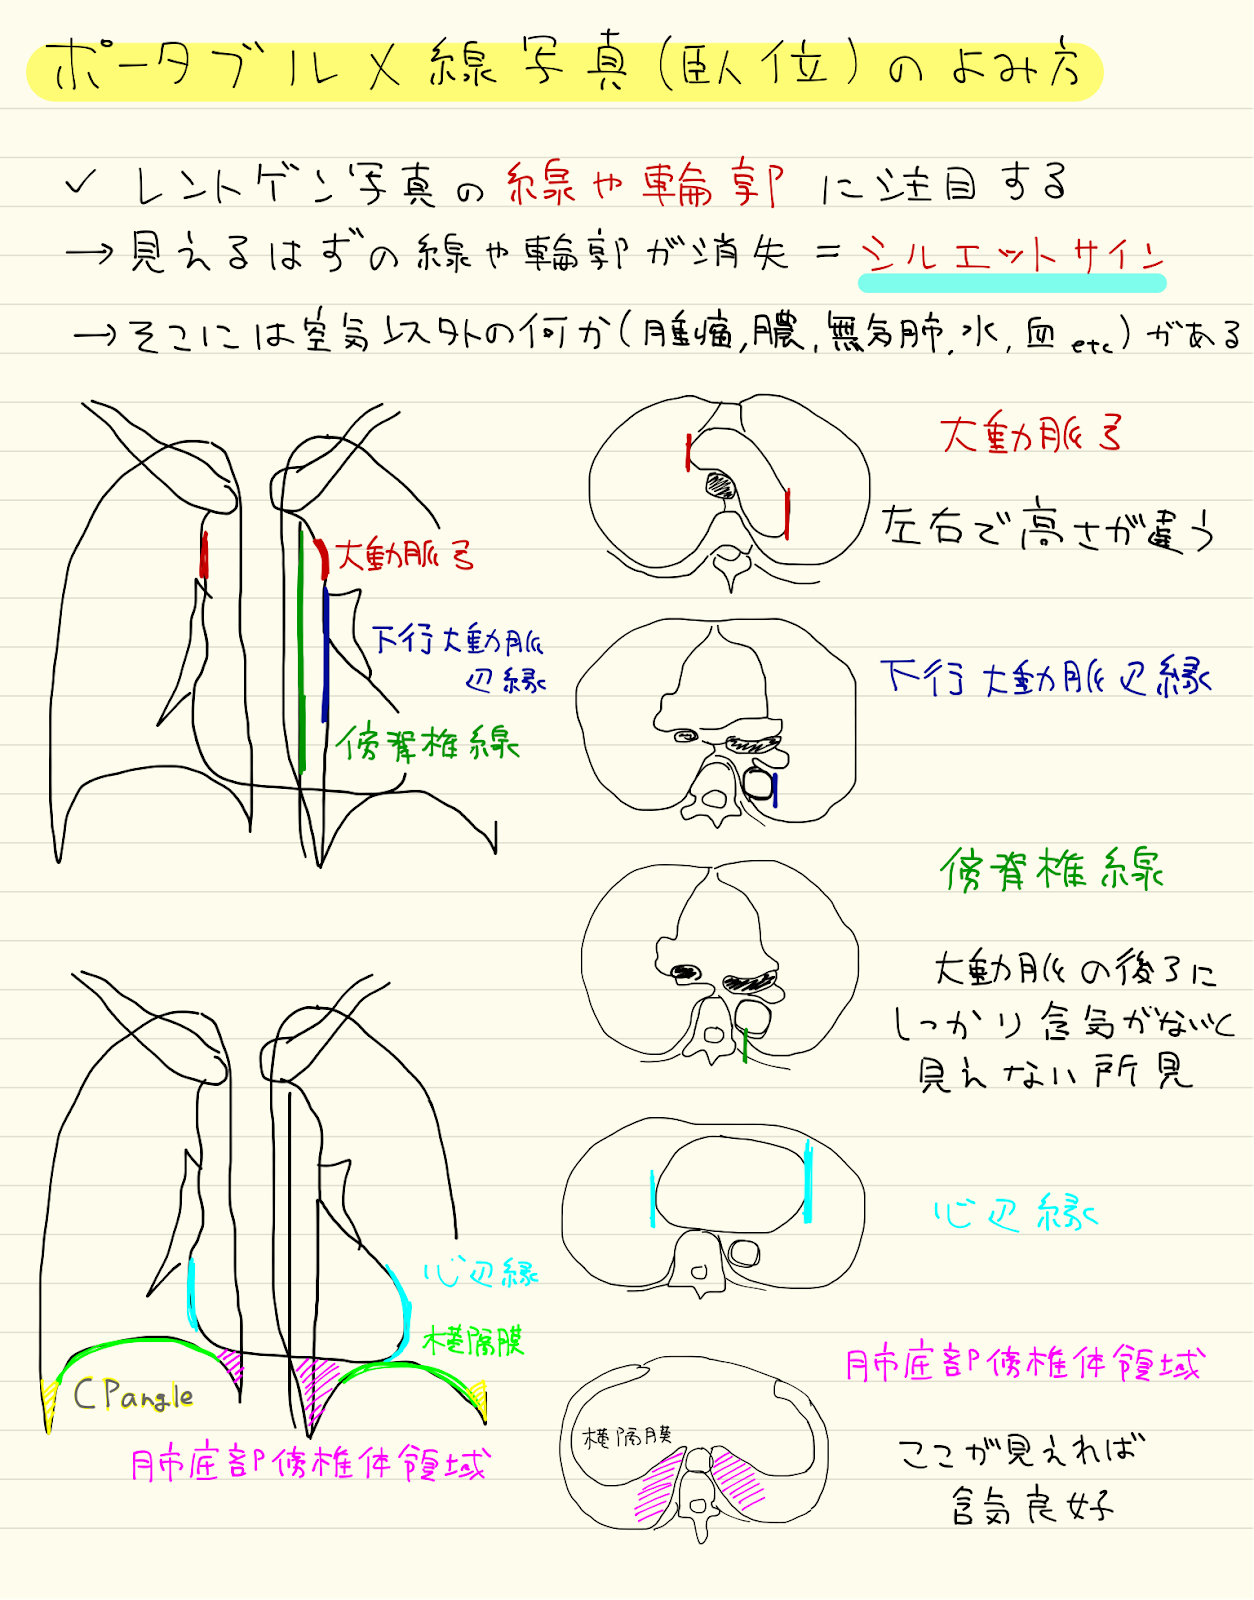 ポータブルX線写真(臥位)のよみ方
✓ レントゲン写真の線や輪郭に注目する
→ 見えるはずの線や輪郭が消失 = シルエットサイン
→ そこには空気以外の何か(腫瘤,膿,無気肺,水,血 etc)がある
大動脈弓
下行大動脈
辺縁
傍脊椎線
大動脈弓
左右で高さが違う
下行大動脈辺縁
傍脊椎線
大動脈の後ろに
しっかり含気がないと
見えない所見
心辺縁
横隔膜
CPangle
肺底部傍椎体領域
心辺縁
横隔膜
肺底部傍椎体領域
ここが見えれば
含気良好